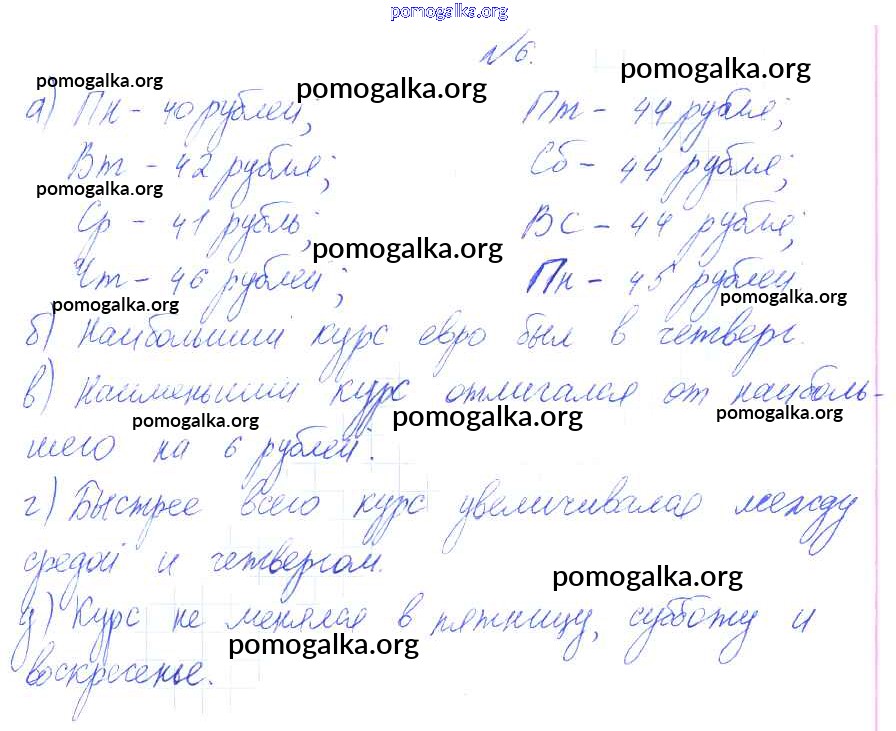 pomogalka.org
№6.
pomogalka.org pomogalka.org pomogalka.org
а) Пн - 40 рублей; Пт - 44 рубля;
Вт - 42 рубля; Сб - 44 рубля;
pomogalka.org
Ср - 41 рубль; ВС - 44 рубля;
pomogalka.org
Чт - 46 рублей; Пн - 45 рублей.
pomogalka.org pomogalka.org
б) Наибольший курс евро был в четверг.
в) Наименьший курс отличался от наиболь-
pomogalka.org pomogalka.org pomogalka.org
шего на 6 рублей.
г) Быстрее всего курс увеличивался между
средой и четвергом.
pomogalka.org
д) Курс не менялся в пятницу, субботу и
pomogalka.org
воскресенье.